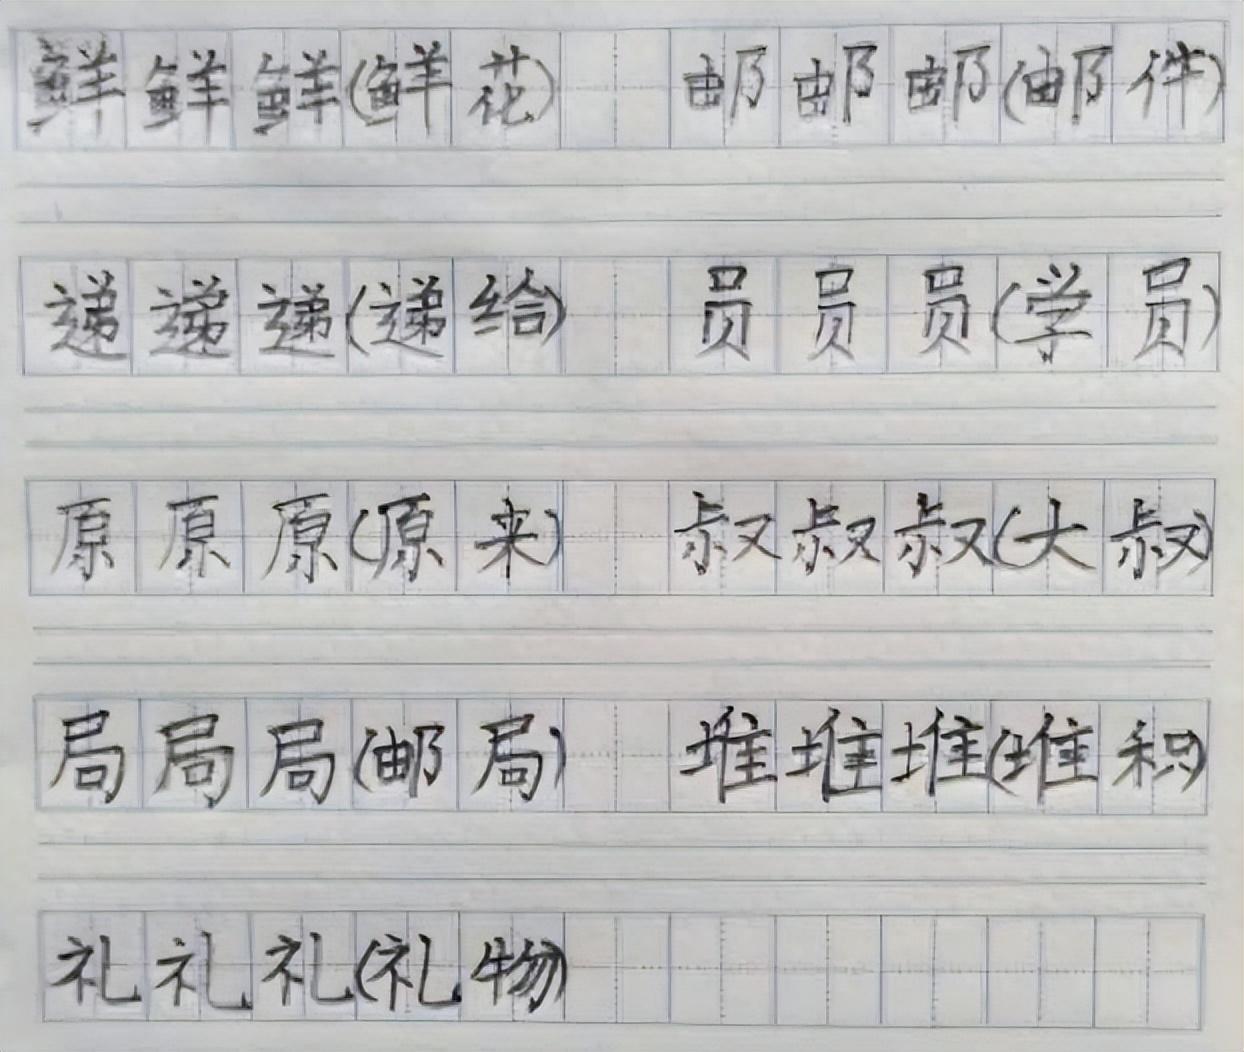 鲜鲜鲜(鲜花) 邮邮邮(邮件)
递递递(递给) 员员员(学员)
原原原(原来) 叔叔叔(大叔)
局局局(邮局) 堆堆堆(堆积)
礼礼礼(礼物)